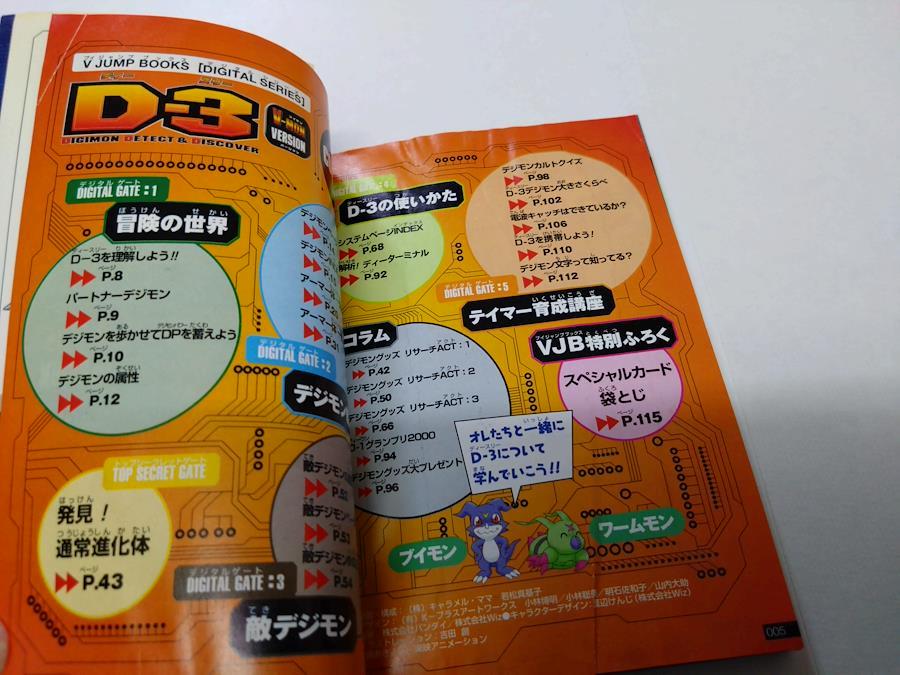 V JUMP BOOKS [DIGITAL SERIES]
D-3
DIGIMON DETECT & DISCOVER
V-MON
VERSION
デジタル ゲート
DIGITAL GATE:1
冒険の世界
D-3を理解しよう!!
P.8
パートナーデジモン
P.9
デジモンを歩かせてDPを蓄えよう
P.10
デジモンの属性
P.12
デジタル ゲート
DIGITAL GATE:2
TOP SECRET GATE
発見!
通常進化体
P.43
デジタル ゲート
DIGITAL GATE:3
敵デジモン
P.54
DIGITAL GATE:4
D-3の使いかた
システムページINDEX
P.68
解析! ディーターミナル
P.92
コラム
デジモングッズ リサーチACT:1
P.42
デジモングッズ リサーチACT:2
P.50
デジモングッズ リサーチACT:3
P.66
D-1グランプリ2000
P.94
デジモングッズ大プレゼント
P.96
デジモンカルトクイズ
P.98
D-3デジモン大きさくらべ
P.102
電波キャッチはできているか?
P.106
D-3を携帯しよう!
P.110
デジモン文字って知ってる?
P.112
デジタル ゲート
DIGITAL GATE:5
テイマー育成講座
VJB特別ふろく
スペシャルカード
袋とじ
P.115
オレたちと一緒に
D-3について
学んでいこう!!
ブイモン
ワームモン
構成:(株)キャラメル・ママ
(有)K-プラスアートワークス 小林博明/小林聡
/明石佐和子/山内大助
(株式会社バンダイ/株式会社Wiz●キャラクターデザイン:渡辺けんじ(株式会社Wiz)
吉田
アニメーション
005